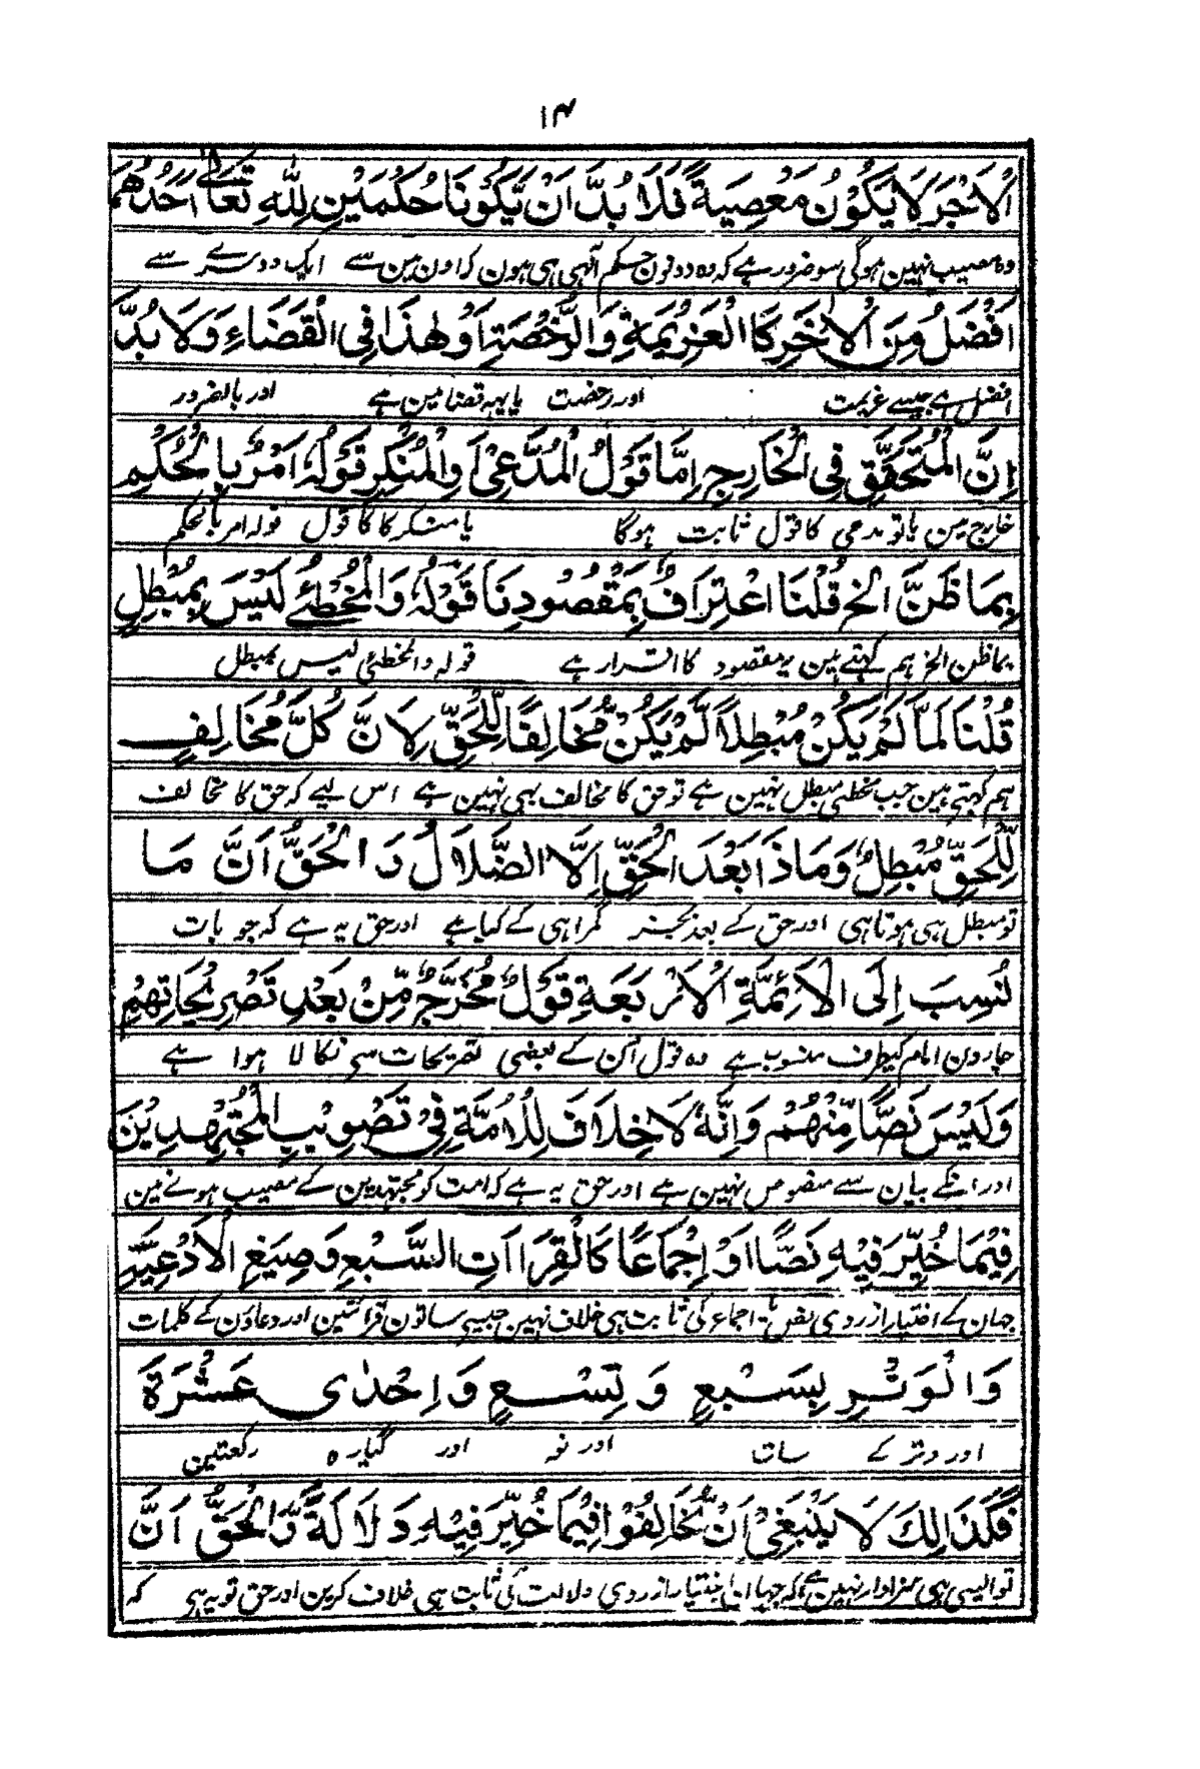 ۱۴
اَلْاَجْرَ لَا يَكُوْنُ مَعْصِيَةً فَلَا بُدَّ اَنْ يَّكُوْنَا حُكْمَيْنِ لِلّٰهِ تَعَالٰى اَحَدُهُمَا
وہ معصیت نہین ہوگی سو ضرور ہے کہ وہ دونون حکم آلٰہی ہی ہون کہ اون مین سے ایک دوسرے سے
اَفْضَلُ مِنَ الْاٰخَرِ كَالْعَزِيْمَةِ وَالرُّخْصَةِ اَوْ هٰذَا فِى الْقَضَاءِ وَلَا بُدَّ
افضل ہے جیسے عزیمت اور رخصت یا یہہ قضا مین ہے اور بالضرور
اِنَّ الْمُتَحَقِّقَ فِى الْخَارِجِ اِمَّا قَوْلُ الْمُدَّعِىْ اَوِالْمُنْكِرِ قَوْلُهٗ اَمْرٌ بِالْحُكْمِ
خارج مین یا تو مدعی کا قول ثابت ہوگا یا منکر کا کا قول قولہ امر بالحکم
بِمَا ظَنَّ الخ قُلْنَا اعْتِرَافٌ بِمَقْصُوْدِنَا قَوْلُهٗ وَالْمُخْطِئُ لَيْسَ بِمُبْطِلٍ
بما ظن الخ ہم کہتے ہین یہ مقصود کا اقرار ہے قولہ والمخطئ لیس بمبطل
قُلْنَا لَمَّا لَمْ يَكُنْ مُبْطِلًا لَمْ يَكُنْ مُّخَالِفًا لِّلْحَقِّ لِاَنَّ كُلَّ مُخَالِفٍ
ہم کہتے ہین جب مخطئی مبطل نہین ہے تو حق کا مخالف بہی نہین ہے اس لیے کہ حق کا مخالف
لِّلْحَقِّ مُبْطِلٌ وَمَاذَا بَعْدَ الْحَقِّ اِلَّا الضَّلَالُ وَ الْحَقُّ اَنَّ مَا
تو مبطل ہی ہوتا ہی اور حق کے بعد بجز گمراہی کے کیا ہے اور حق یہ ہے کہ جو بات
نُسِبَ اِلَى الْاَئِمَّةِ الْاَرْبَعَةِ قَوْلٌ مُخَرَّجٌ مِّنْ بَعْدِ تَصْرِيْحَاتِهِمْ
چارون امام کیطرف منسوب ہے وہ قول اُن کے بعضی تصریحات سے نکالا ہوا ہے
وَلَيْسَ نَصًّا مِّنْهُمْ وَاِنَّهٗ لَا خِلَافَ لِلْاُمَّةِ فِىْ تَصْوِيْبِ الْمُجْتَهِدِيْنَ
اور انکے بیان سے منصوص نہین ہے اور حق یہ ہے کہ امت کو مجتہدین کے مصیب ہونے مین
فِيْمَا خُيِّرَ فِيْهِ نَصًّا اَوْ اِجْمَاعًا كَالْقِرَااٰتِ السَّبْعِ وَصِيَغِ الْاَدْعِيَةِ
جہان کے اختیار از روی نص یا اجماع کی ثابت ہی خلاف نہین جیسے ساتون قرائتین اور دعاؤن کے کلمات
وَالْوَتْرِ بِسَبْعٍ وَ تِسْعٍ وَاِحْدٰى عَشْرَةَ
اور وتر کے سات اور نو اور گیارہ رکعتین
فَكَذَالِكَ لَا يَنْبَغِىْ اَنْ يُّخَالِفُوْا فِيْمَا خُيِّرَ فِيْهِ دَلَالَةً وَّالْحَقُّ اَنَّ
تو ایسی ہی سزاوار نہین ہے کہ جہان اختیار از روی دلالت کی ثابت ہی خلاف کرین اور حق تو یہ ہی کہ